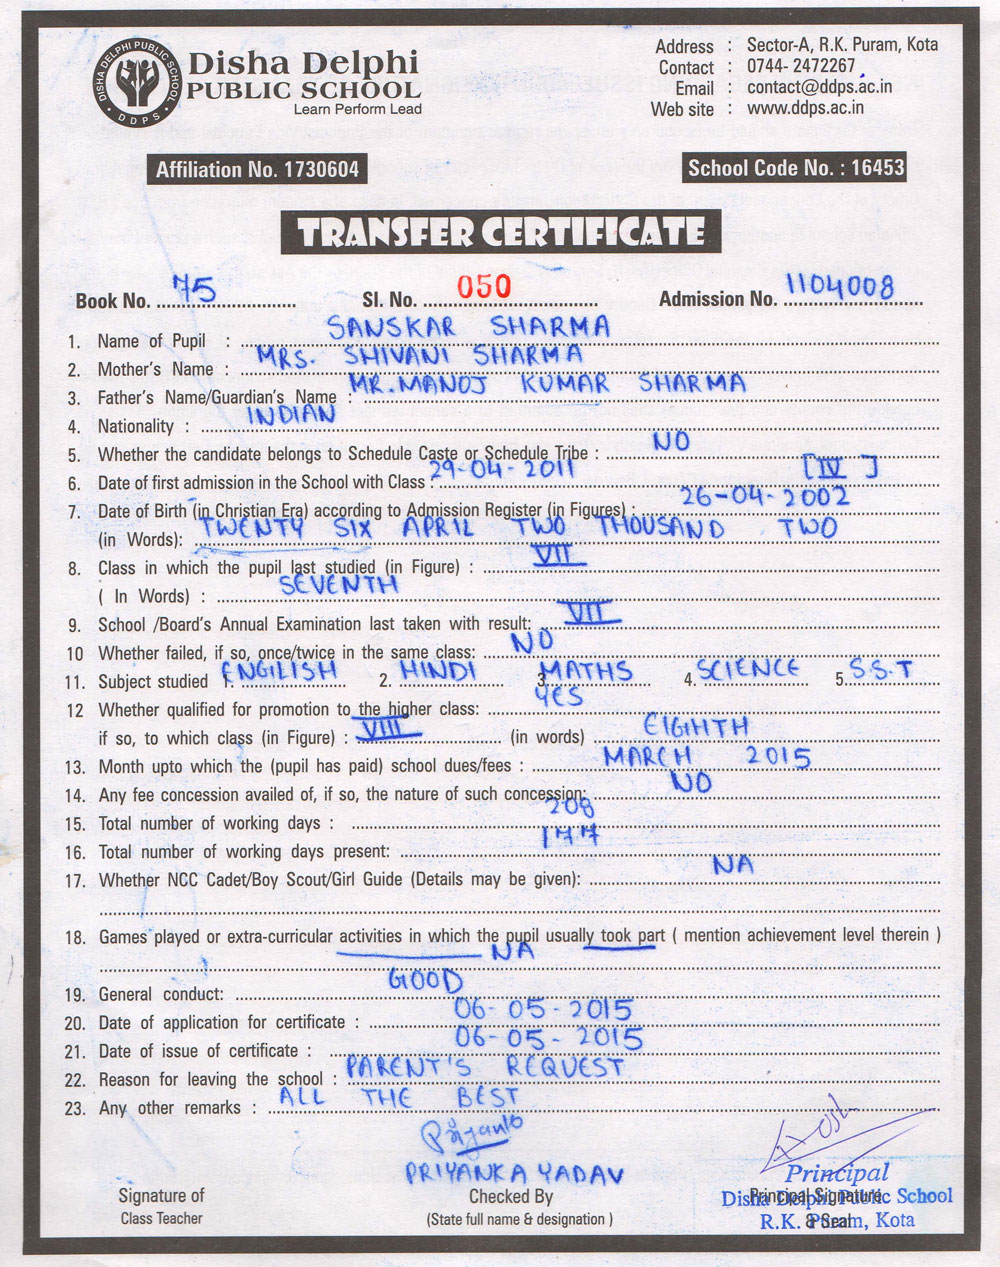 DISHA DELPHI PUBLIC SCHOOL
D D P S
Disha Delphi
PUBLIC SCHOOL
Learn Perform Lead
Address : Sector-A, R.K. Puram, Kota
Contact : 0744- 2472267
Email : contact@ddps.ac.in
Web site : www.ddps.ac.in
Affiliation No. 1730604 School Code No. : 16453
TRANSFER CERTIFICATE
Book No. 75 Sl. No. 050 Admission No. 1104008
1. Name of Pupil : SANSKAR SHARMA
2. Mother's Name : MRS. SHIVANI SHARMA
3. Father's Name/Guardian's Name : MR. MANOJ KUMAR SHARMA
4. Nationality : INDIAN
5. Whether the candidate belongs to Schedule Caste or Schedule Tribe : NO
6. Date of first admission in the School with Class : 29-04-2011 [IV]
7. Date of Birth (in Christian Era) according to Admission Register (in Figures) : 26-04-2002
(in Words): TWENTY SIX APRIL TWO THOUSAND TWO
8. Class in which the pupil last studied (in Figure) : VII
( In Words) : SEVENTH
9. School /Board's Annual Examination last taken with result: VII
10 Whether failed, if so, once/twice in the same class: NO
11. Subject studied 1. ENGILISH 2. HINDI 3. MATHS 4. SCIENCE 5. S.S.T
12 Whether qualified for promotion to the higher class: YES
if so, to which class (in Figure) : VIII (in words) EIGHTH
13. Month upto which the (pupil has paid) school dues/fees : MARCH 2015
14. Any fee concession availed of, if so, the nature of such concession: NO
15. Total number of working days : 208
16. Total number of working days present: 177
17. Whether NCC Cadet/Boy Scout/Girl Guide (Details may be given): NA
18. Games played or extra-curricular activities in which the pupil usually took part ( mention achievement level therein )
NA
19. General conduct: GOOD
20. Date of application for certificate : 06-05-2015
21. Date of issue of certificate : 06-05-2015
22. Reason for leaving the school : PARENT'S REQUEST
23. Any other remarks : ALL THE BEST
PRIYANKA YADAV
Signature of
Class Teacher
Checked By
(State full name & designation )
Principal Signature
& Seal
Principal
Disha Delphi Public School
R.K. Puram, Kota